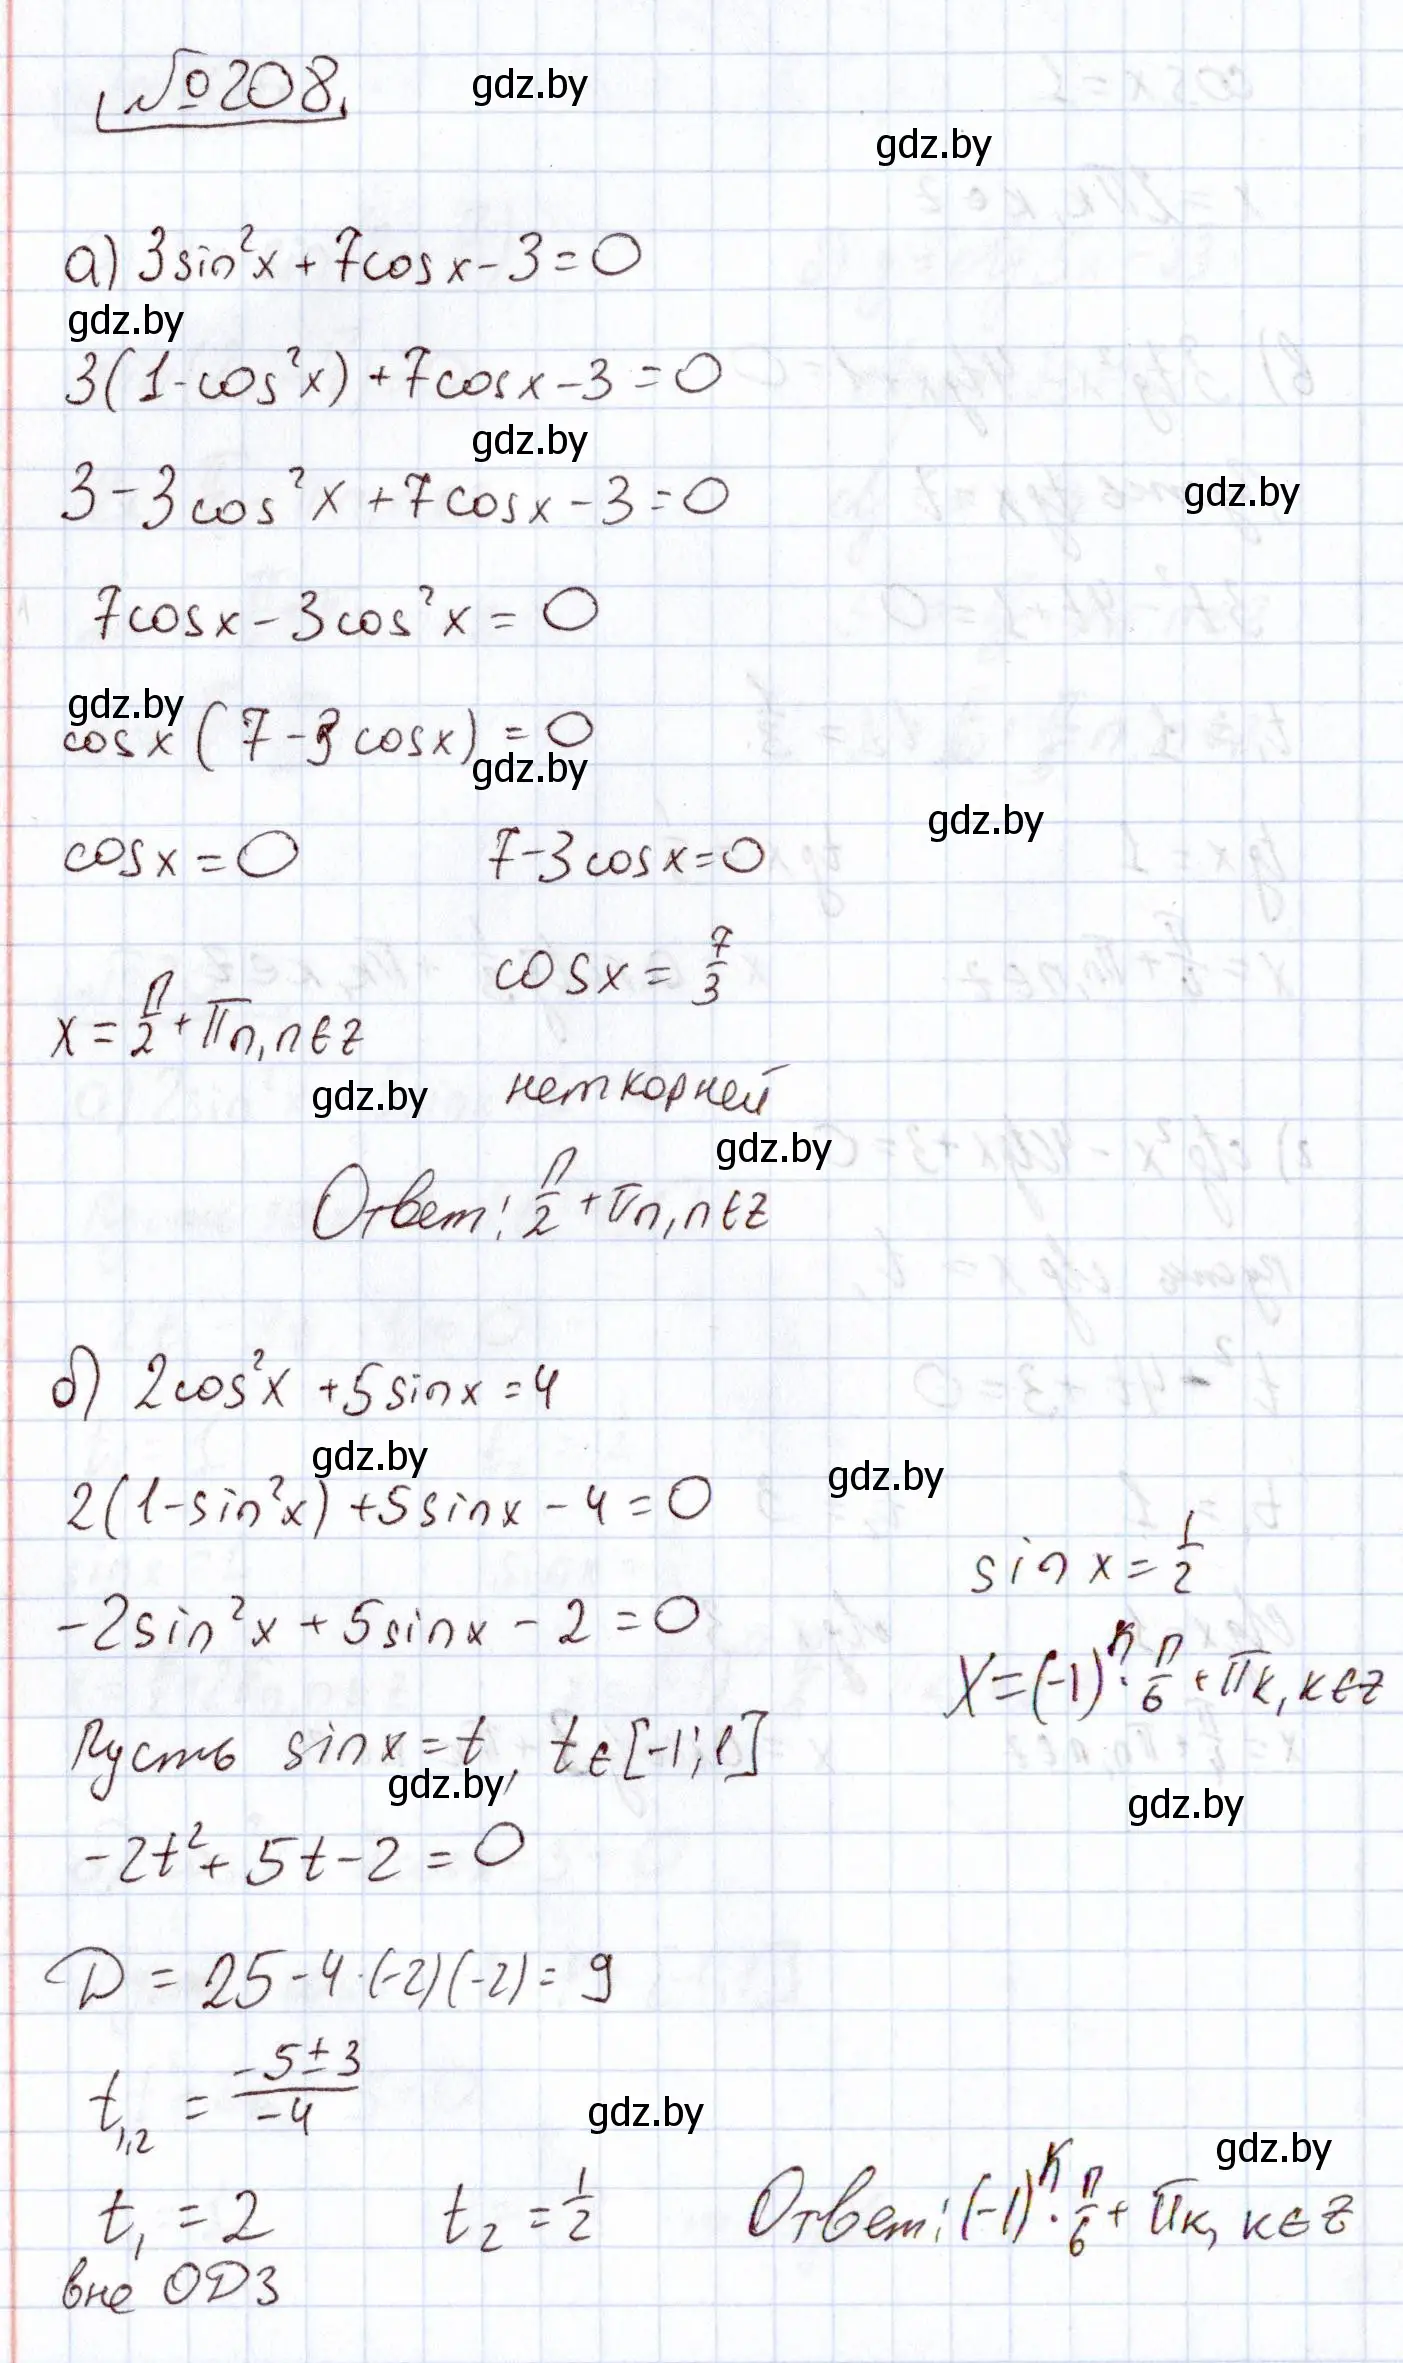 №208
gdz.by
gdz.by
а) 3sin²x + 7cosx - 3 = 0
gdz.by
3(1-cos²x) + 7cosx - 3 = 0
gdz.by
3 - 3cos²x + 7cosx - 3 = 0
gdz.by
7cosx - 3cos²x = 0
gdz.by
cosx (7 - 3cosx) = 0
gdz.by
gdz.by
cosx = 0    7 - 3cosx = 0
cosx = 7/3
x = π/2 + πn, n∈z
gdz.by
нет корней
gdz.by
Ответ: π/2 + πn, n∈z
б) 2cos²x + 5sinx = 4
gdz.by
gdz.by
2(1-sin²x) + 5sinx - 4 = 0
-2sin²x + 5sinx - 2 = 0
Пусть sinx = t, t∈[-1;1]
gdz.by
-2t² + 5t - 2 = 0
D = 25 - 4·(-2)(-2) = 9
t₁,₂ = (-5±3)/(-4)
gdz.by
t₁ = 2    t₂ = 1/2
вне ОДЗ
sin x = 1/2
x = (-1)ᵏ · π/6 + πk, k∈z
gdz.by
gdz.by
Ответ: (-1)ᵏ · π/6 + πk, k∈z